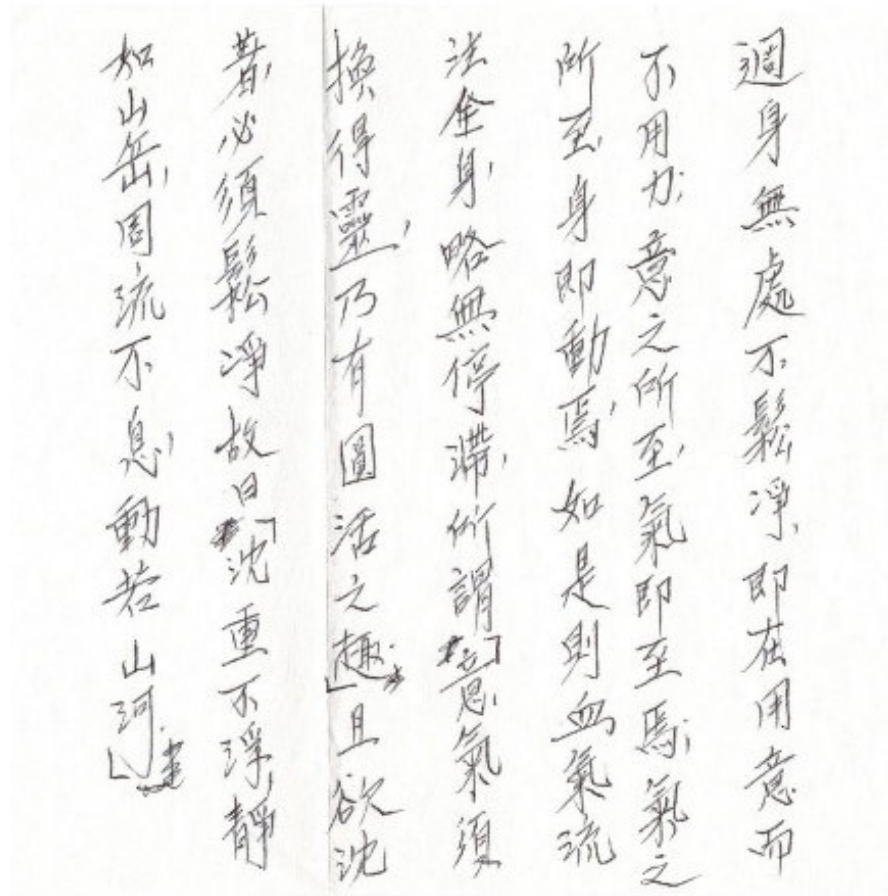 週身無處不鬆淨,即在用意而
不用力;意之所至,氣即至焉;氣之
所至,身即動焉,如是則血氣流
注全身,略無停滯,所謂「意氣須
換得靈,乃有圓活之趣」且欲沈
著,必須鬆淨故曰「沈重不浮,靜
如山岳,周流不息,動若山河.」